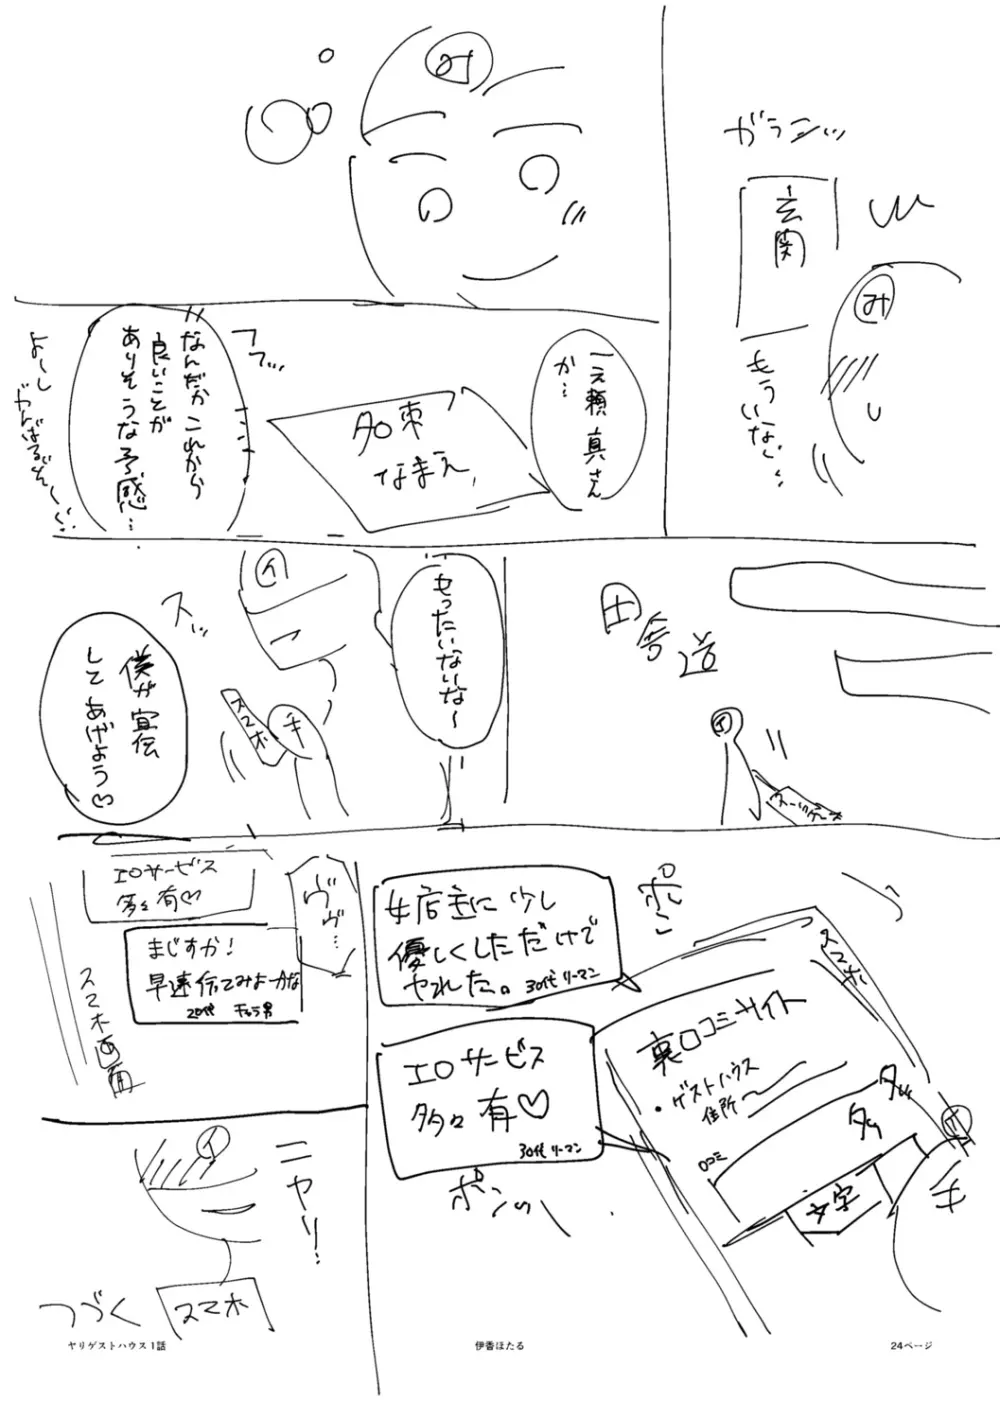 ガラーン…
玄関
み
もう
いない…
み
一之瀬 真さん
か…
名簿
なまえ
フフ…
なんだかこれから
良いことが
ありそうな予感…
よーし
がんばるぞ〜
田舎道
イ
もったいないな〜
イ
ス…
スマホ
手
僕が宣伝
してあげよう♡
ポン
スマホ
女店主に少し
優しくしただけで
ヤれた。30代リーマン
裏口コミサイト
・ゲストハウス
住所
口コミ
タッ
タッ
文字
イ
手
エロサービス
多々有♡
30代リーマン
ポンッ
ヴヴ…
エロサービス
多々有♡
まじすか!
早速行ってみよーかな
20代 チャラ男
スマホ画面
イ
ニヤリ!
スマホ
つづく
ヤリゲストハウス1話
伊香ほたる
24ページ